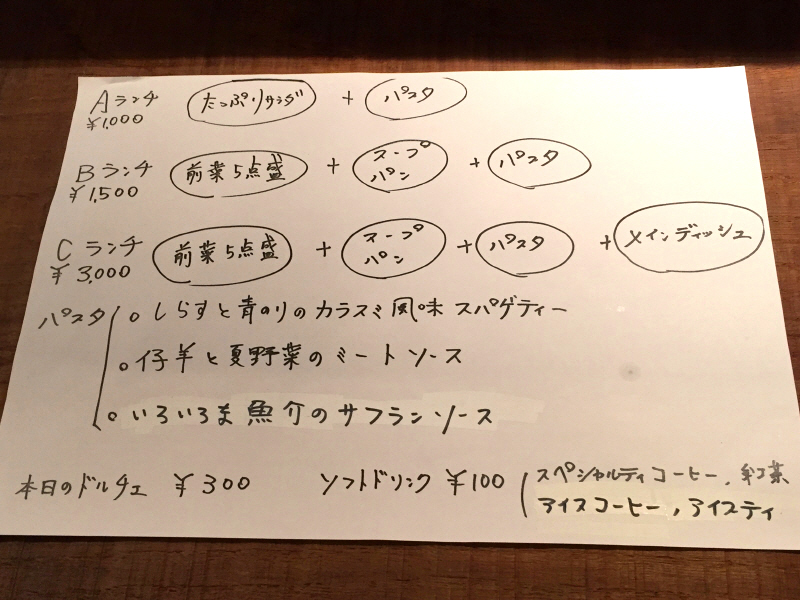 Aランチ たっぷりサラダ + パスタ
¥1,000
Bランチ 前菜5点盛 + スープ パン + パスタ
¥1,500
Cランチ 前菜5点盛 + スープ パン + パスタ + メインディッシュ
¥3,000
パスタ 。しらすと青のりのカラスミ風味 スパゲティー
。仔羊と夏野菜のミートソース
。いろいろま魚介のサフランソース
本日のドルチェ ¥300 ソフトドリンク ¥100 (スペシャルティコーヒー, 紅茶
アイスコーヒー, アイスティ